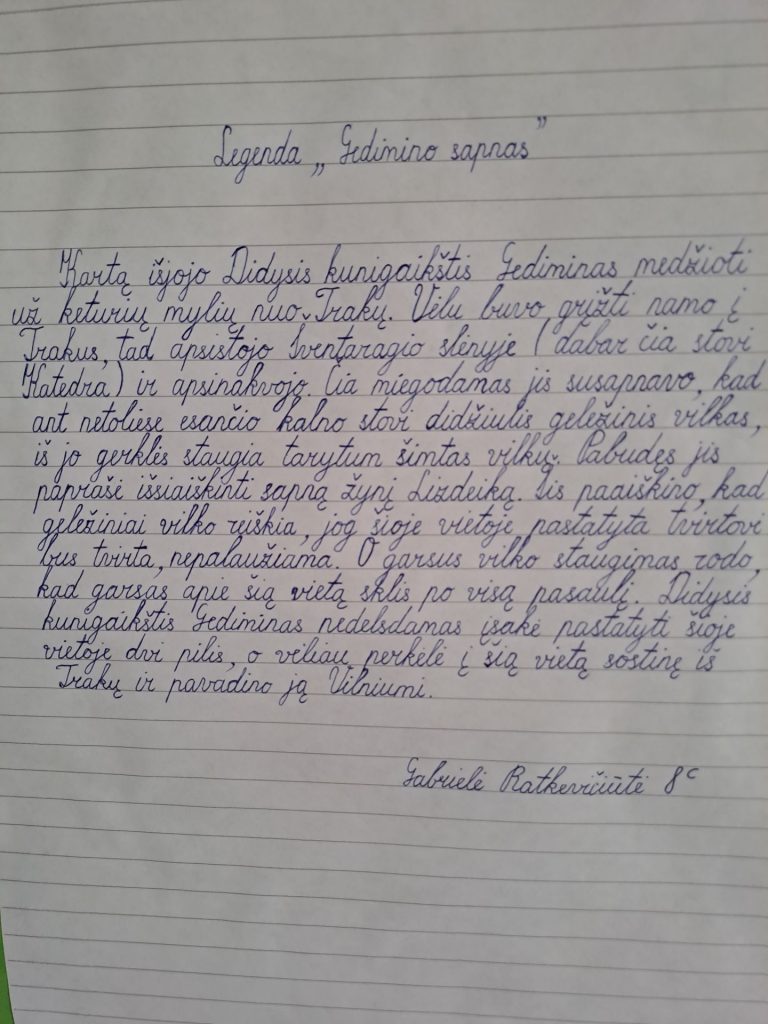 Legenda „Gedimino sapnas”
Kartą išjojo Didysis kunigaikštis Gediminas medžioti
už keturių mylių nuo Trakų. Vėlu buvo grįžti namo į
Trakus, tad apsistojo Šventaragio slėnyje (dabar čia stovi
Katedra) ir apsinakvojo. Čia miegodamas jis susapnavo, kad
ant netoliese esančio kalno stovi didžiulis geležinis vilkas,
iš jo gerklės staugia tarytum šimtas vilkų. Pabudęs jis
paprašė išsiaiškinti sapną žynį Lizdeiką. Šis paaiškino, kad
geležiniai vilko reiškia, jog šioje vietoje pastatyta tvirtovi
bus tvirta, nepalaužiama. O garsus vilko staugimas rodo,
kad garsas apie šią vietą sklis po visą pasaulį. Didysis
kunigaikštis Gediminas nedelsdamas įsakė pastatyti šioje
vietoje dvi pilis, o vėliau perkėlė į šią vietą sostinę iš
Trakų ir pavadino ją Vilniumi.
Gabrielė Ratkevičiūtė 8c